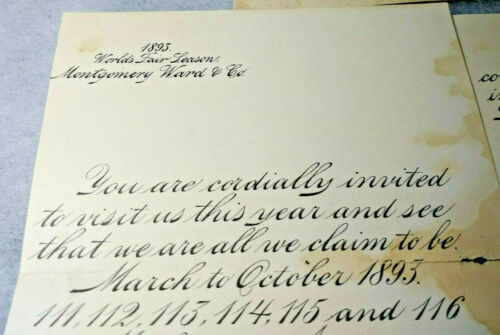 1893.
World's Fair Season.
Montgomery Ward & Co.
You are cordially invited
to visit us this year and see
that we are all we claim to be.
March to October 1893.
111, 112, 113, 114, 115 and 116
co